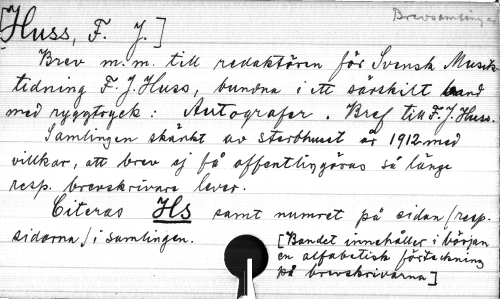 Brevsamlingar
[Huss, F. J.]
Brev m.m. till redaktören för Svensk Musik-
tidning F. J. Huss, bundna i ett särskilt band
med ryggtryck: Autografer. Bref till F. J. Huss.
Samlingen skänkt av sterbhuset år 1912 med
villkor, att brev ej få offentliggöras så länge
resp. brevskrivare lever.
Citeras HS samt numret på sidan/resp.
sidorna/i samlingen.
[Bandet innehåller i början
en alfabetisk förteckning
på brevskrivarna]